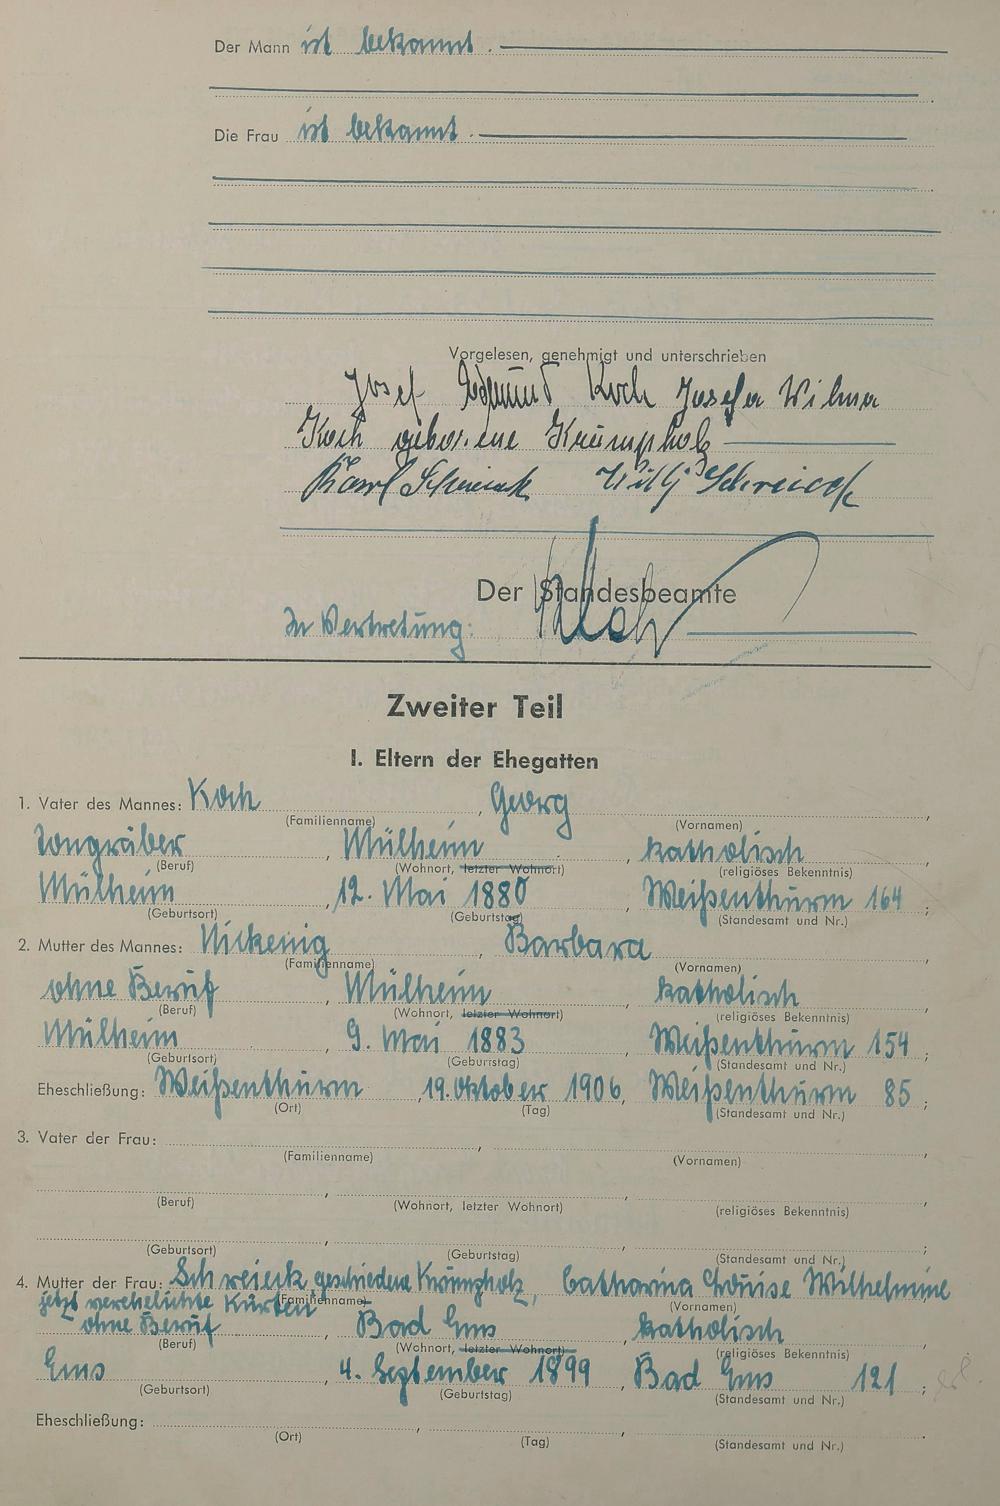 Der Mann ist bekannt.
Die Frau ist bekannt.
Vorgelesen, genehmigt und unterschrieben
Josef Edmund Koch Josefa Wilma
Koch geborene Krumpholz
Karl Schreieck Willy Schreieck
Der Standesbeamte
In Vertretung:
Zweiter Teil
I. Eltern der Ehegatten
1. Vater des Mannes: Koch, Georg,
(Familienname) (Vornamen)
Tongräber, Mülheim, katholisch,
(Beruf) (Wohnort, letzter Wohnort) (religiöses Bekenntnis)
Mülheim, 12. Mai 1880, Weißenthurm 164;
(Geburtsort) (Geburtstag) (Standesamt und Nr.)
2. Mutter des Mannes: Nickenig, Barbara,
(Familienname) (Vornamen)
ohne Beruf, Mülheim, katholisch,
(Beruf) (Wohnort, letzter Wohnort) (religiöses Bekenntnis)
Mülheim, 9. Mai 1883, Weißenthurm 154;
(Geburtsort) (Geburtstag) (Standesamt und Nr.)
Eheschließung: Weißenthurm, 19. Oktober 1906, Weißenthurm 85;
(Ort) (Tag) (Standesamt und Nr.)
3. Vater der Frau: , ,
(Familienname) (Vornamen)
, , ,
(Beruf) (Wohnort, letzter Wohnort) (religiöses Bekenntnis)
, , ;
(Geburtsort) (Geburtstag) (Standesamt und Nr.)
4. Mutter der Frau: Schreieck geschiedene Krumpholz, Catharina Louise Wilhelmine
jetzt verehelichte Kürten (Familienname) (Vornamen)
ohne Beruf, Bad Ems, katholisch
(Beruf) (Wohnort, letzter Wohnort) (religiöses Bekenntnis)
Ems, 4. September 1899, Bad Ems 121;
(Geburtsort) (Geburtstag) (Standesamt und Nr.)
Eheschließung: , , .
(Ort) (Tag) (Standesamt und Nr.)